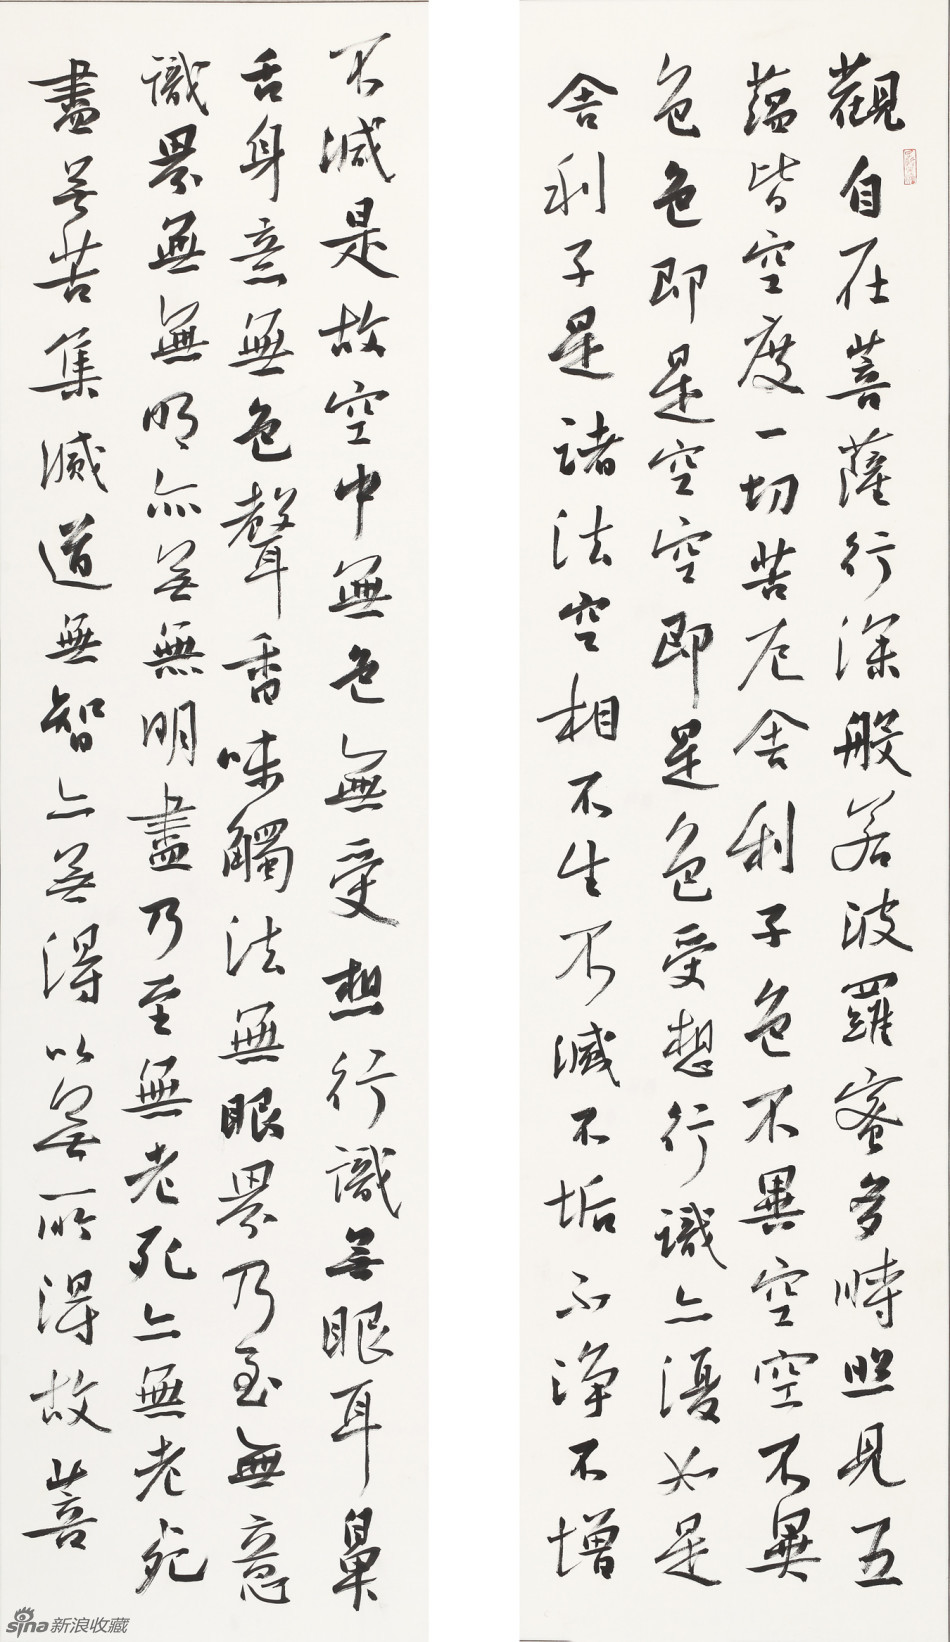 觀自在菩薩行深般若波羅蜜多時照見五
蘊皆空度一切苦厄舍利子色不異空空不異
色色即是空空即是色受想行識亦復如是
舍利子是諸法空相不生不滅不垢不淨不增
不減是故空中無色無受想行識無眼耳鼻
舌身意無色聲香味觸法無眼界乃至無意
識界無無明亦無無明盡乃至無老死亦無老死
盡無苦集滅道無智亦無得以無所得故菩
sina新浪收藏